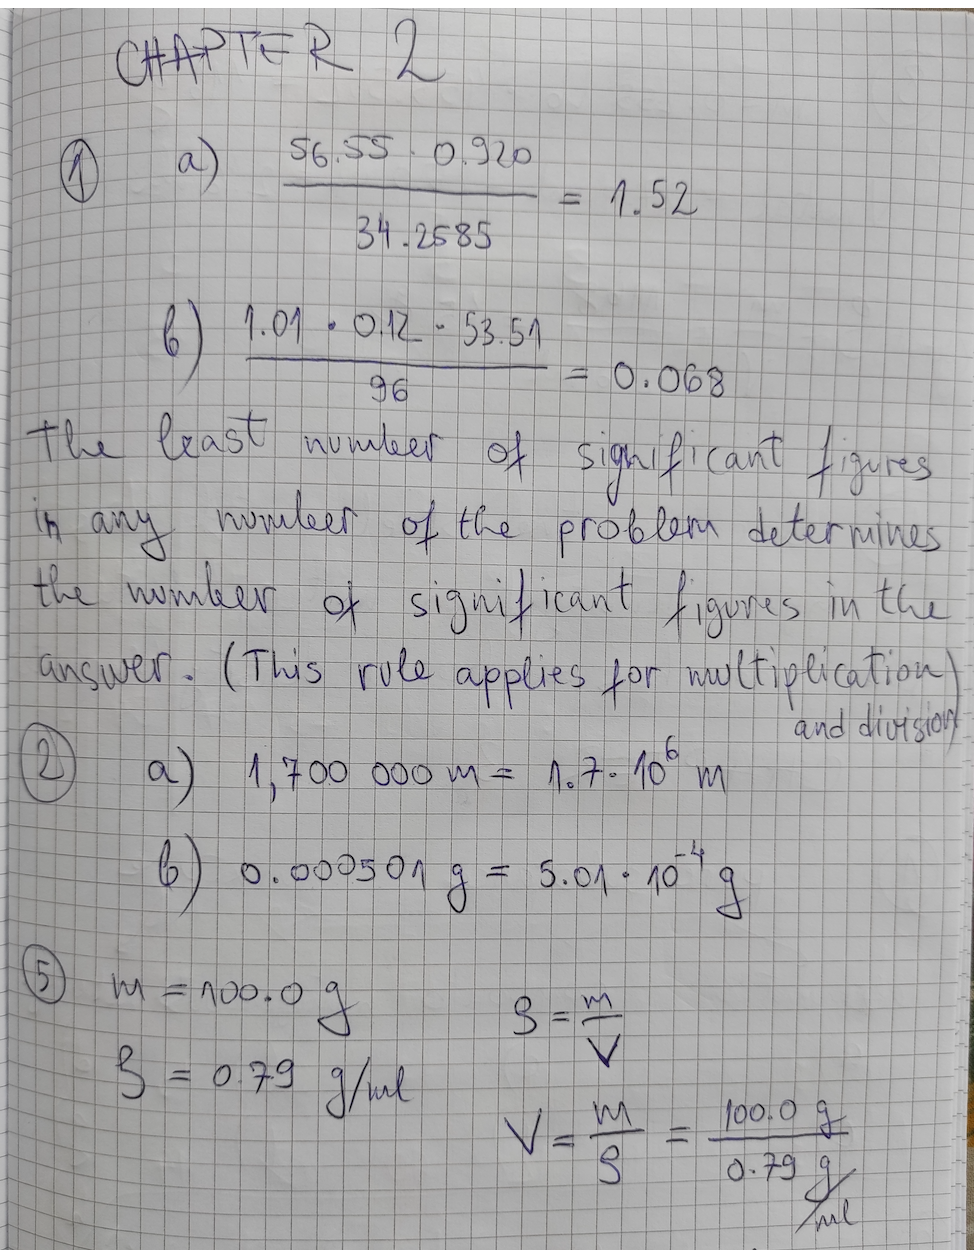 CHAPTER 2
① a) 56.55 · 0.920 / 34.2585 = 1.52
b) 1.01 · 0.12 · 53.51 / 96 = 0.068
The least number of significant figures
in any number of the problem determines
the number of significant figures in the
answer. (This rule applies for multiplication)
and division
② a) 1,700 000 m = 1.7 · 10⁶ m
b) 0.000501 g = 5.01 · 10⁻⁴ g
⑤ m = 100.0 g
ρ = m / V
ρ = 0.79 g/ml
V = m / ρ = 100.0 g / 0.79 g/ml